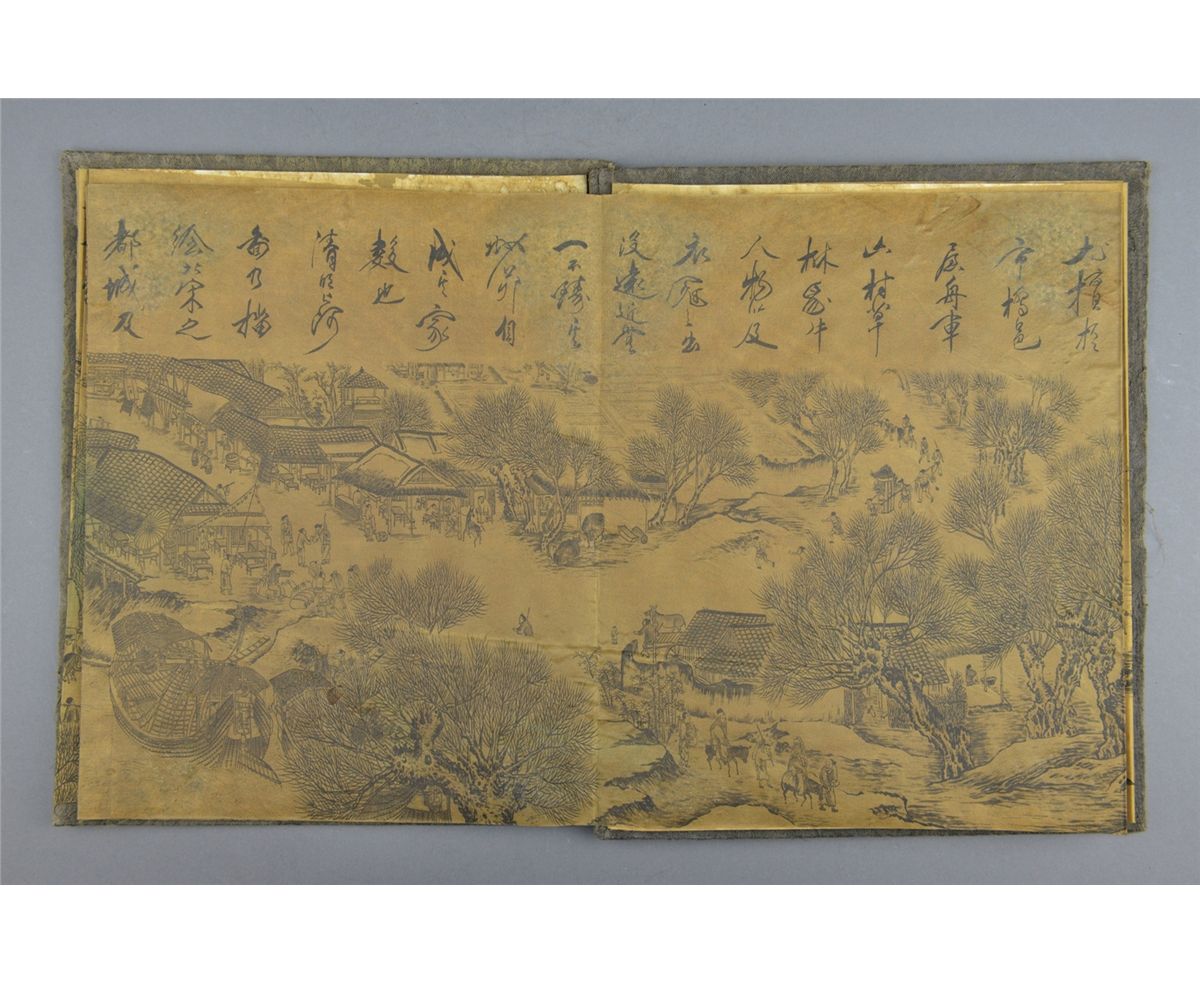 尤擅於
市橋邑
屋舟車
山村草
林馬牛
人物以及
衣冠之出
沒遠近無
一不臻其
妙 自
成其家
數也
清明上河
圖乃描
繪北宋之
都城及